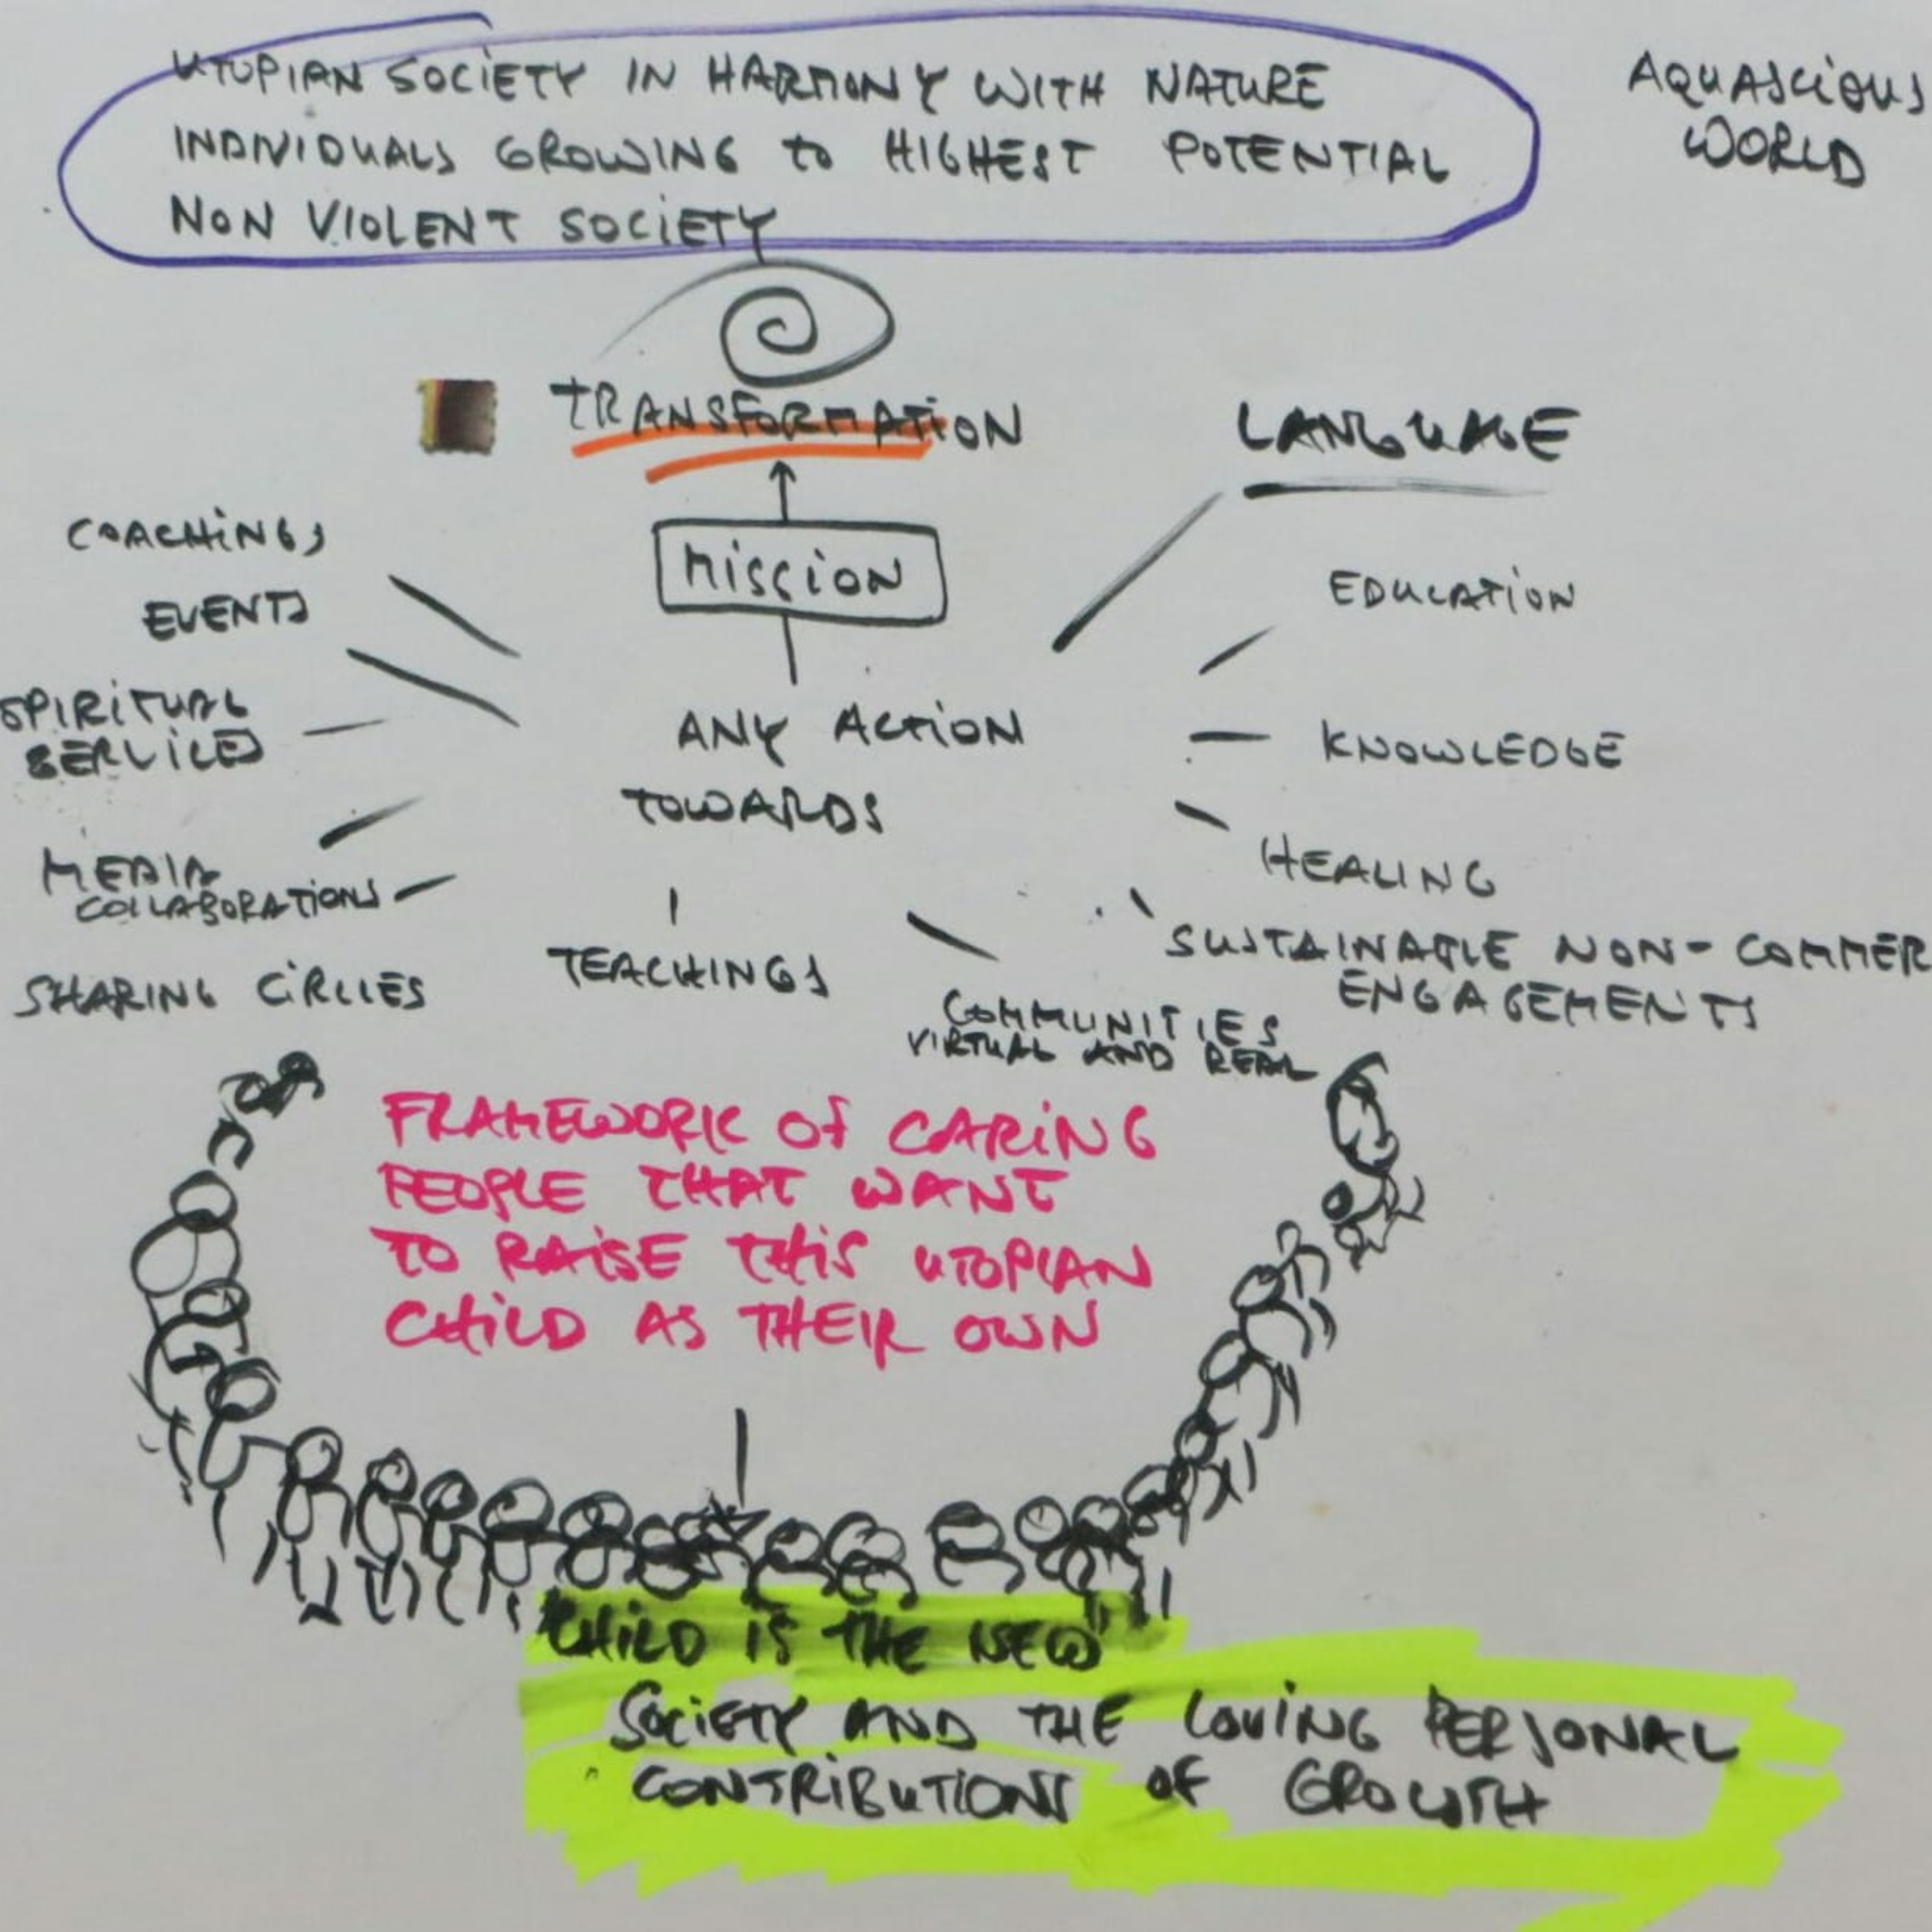 UTOPIAN SOCIETY IN HARMONY WITH NATURE
INDIVIDUALS GROWING to HIGHEST POTENTIAL
NON VIOLENT SOCIETY
AQUASCIOUS
WORLD
TRANSFORMATION
LANGUAGE
MISSION
COACHINGS
EVENTS
SPIRITUAL
SERVICES
MEDIA
COLLABORATIONS
SHARING CIRCLES
ANY ACTION
TOWARDS
EDUCATION
KNOWLEDGE
HEALING
SUSTAINABLE NON-COMMER
ENGAGEMENTS
TEACHINGS
COMMUNITIES
VIRTUAL AND REAL
FRAMEWORK OF CARING
PEOPLE THAT WANT
TO RAISE THIS UTOPIAN
CHILD AS THEIR OWN
"CHILD IS THE NEW"
SOCIETY AND THE LOVING PERSONAL
CONTRIBUTIONS OF GROWTH